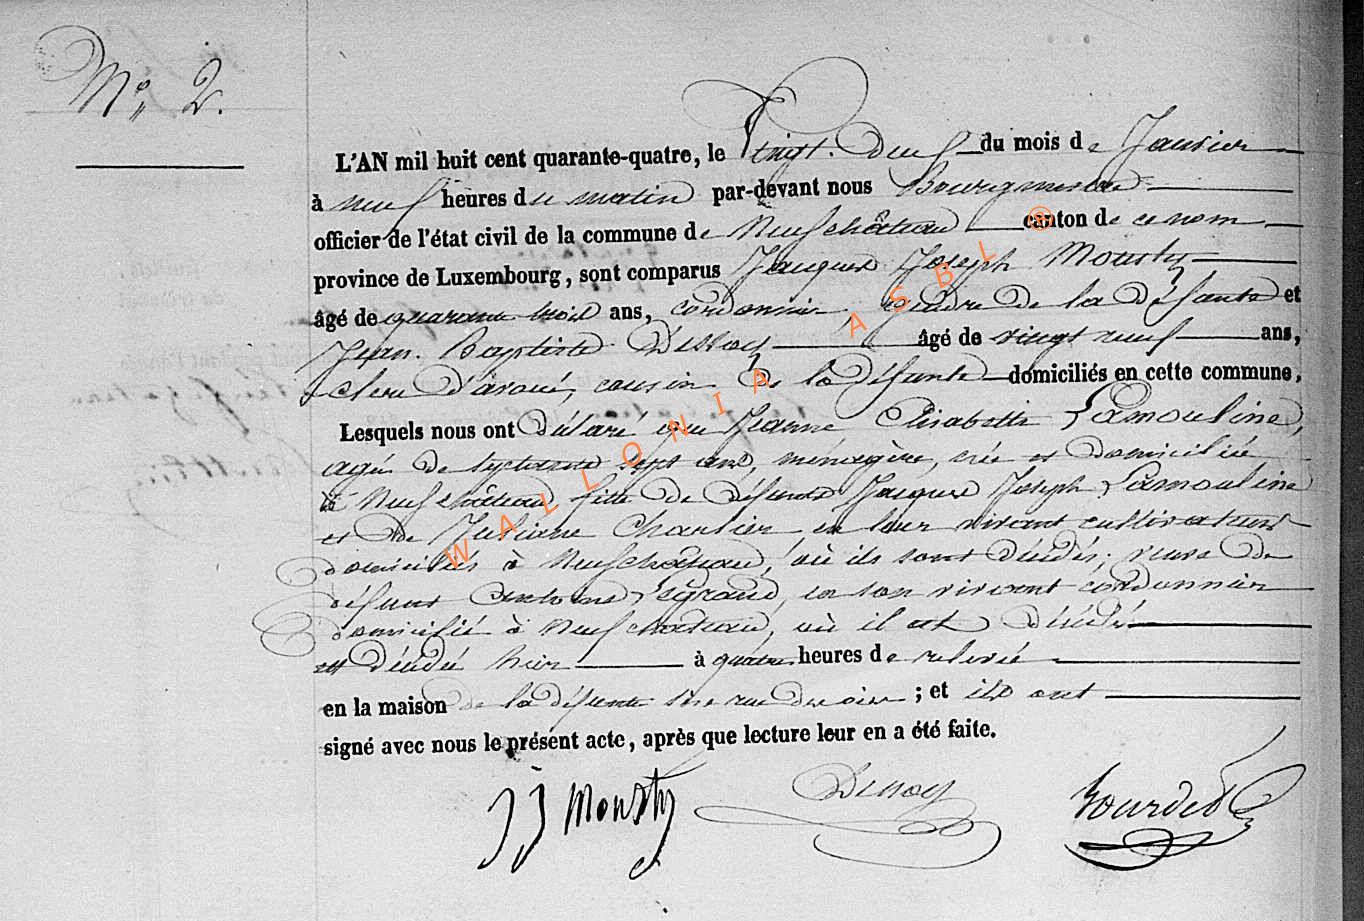 N° 2.
L'AN mil huit cent quarante-quatre, le Vingt Deux du mois de Janvier
à neuf heures du matin par-devant nous Bourgmestre
officier de l'état civil de la commune de Neufchâteau canton de ce nom
province de Luxembourg, sont comparus Jacques Joseph Mousty
âgé de quarante trois ans, cordonnier, gendre de la défunte et
Jean Baptiste Dessoy âgé de vingt neuf ans,
clerc d'avoué, cousin de la défunte domiciliés en cette commune,
Lesquels nous ont déclaré que Jeanne Elisabeth Lamouline,
agée de septante sept ans, ménagère, née et domiciliée
à Neufchâteau fille de défunts Jacques Joseph Lamouline
et de Juliane Charlier en leur vivant cultivateurs
domiciliés à Neufchâteau, où ils sont décédés, veuve de
défunt Antoine Legrand, en son vivant cordonnier
domicilié à Neufchâteau, où il est décédé
est décédée hier à quatre heures de relevée
en la maison de la défunte sise rue ; et ils ont
signé avec nous le présent acte, après que lecture leur en a été faite.
JJ Mousty Dessoy
WALLONIA ASBL ®